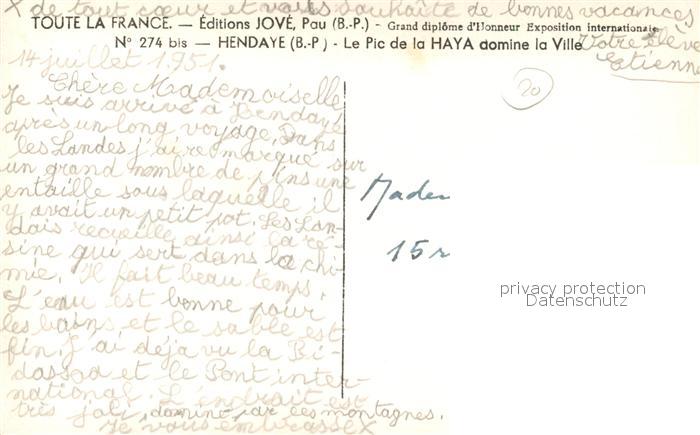 X de tout cœur et vous souhaite de bonnes vacances
TOUTE LA FRANCE. — Éditions JOVÉ, Pau (B.-P.) - Grand diplôme d'Honneur Exposition internationale
N° 274 bis — HENDAYE (B.-P) - Le Pic de la HAYA domine la Ville
Votre élève
Etienne
14 juillet 1951.
20
Chère Mademoiselle
Je suis arrivé à Hendaye
après un long voyage. Dans
les Landes j'ai remarqué sur
un grand nombre de pins une
entaille sous laquelle il
y avait un petit pot. Les Lan-
dais recueille ainsi la ré-
sine qui sert dans la chi-
mie. Il fait beau temps.
L'eau est bonne pour
les bains et le sable est
fin. J'ai déjà vu la Bi-
dassoa et le Pont inter-
national. L'endroit est
très joli, dominé par les montagnes.
Je vous embrasse X
15
privacy protection
Datenschutz